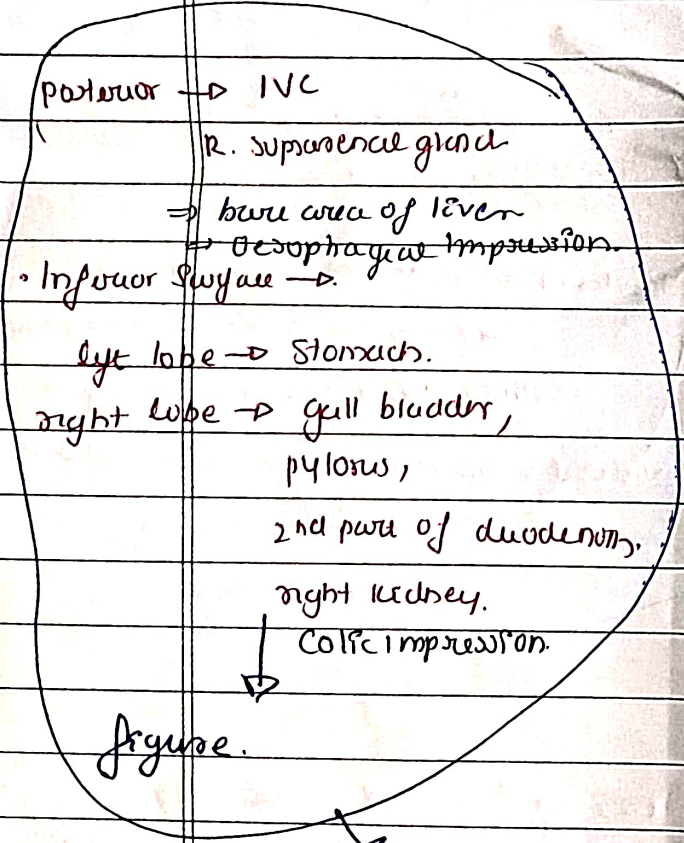 posterior → IVC
R. suprarenal gland
⇒ bare area of liver
⇒ Oesophageal impression.
• Inferior surface →
left lobe → Stomach.
right lobe → gall bladder,
pylorus,
2nd part of duodenum.
right kidney.
Colic impression.
figure.